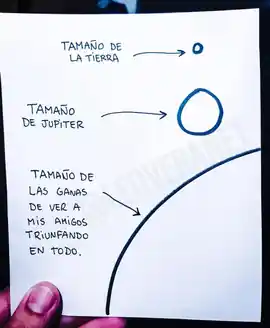 TAMAÑO DE
LA TIERRA
TAMAÑO
DE JUPITER
TAMAÑO DE
LAS GANAS
DE VER A
MIS AMIGOS
TRIUNFANDO
EN TODO.